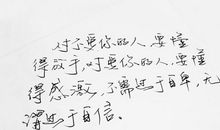 对不爱你的人,要懂
得放手,对爱你的人,要懂
得感激,不需过于自卑,无
谓过于自信。